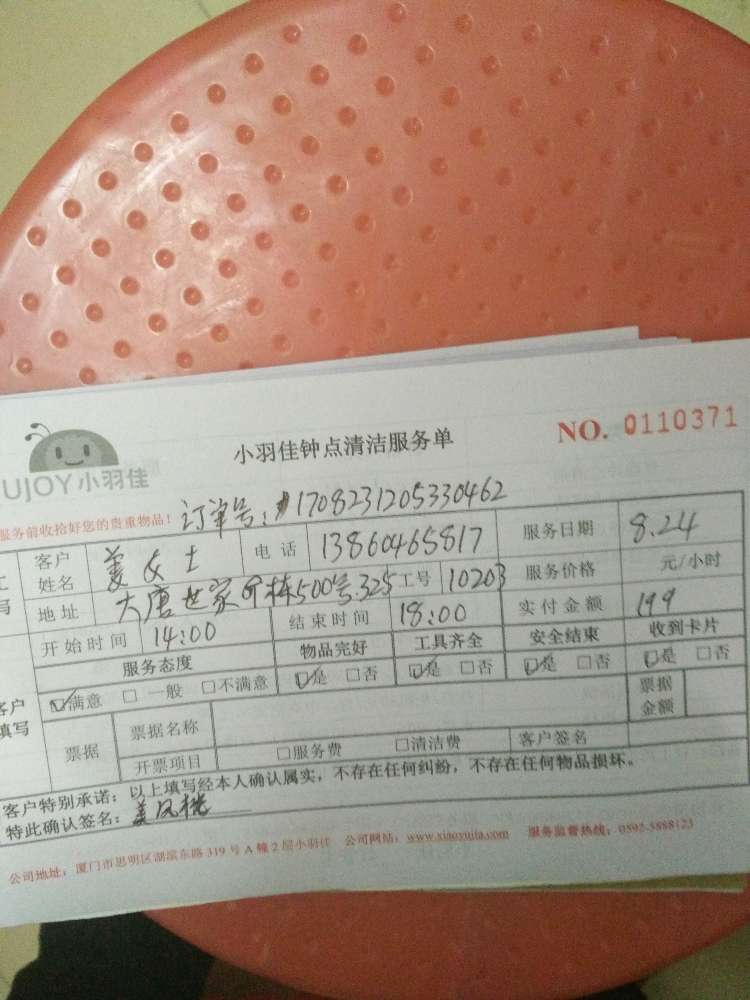 UJOY小羽佳
小羽佳钟点清洁服务单
NO. 0110371
服务前收拾好您的贵重物品!
订单号: 1708231205330462
客户姓名 姜女士 电话 13860465817 服务日期 8.24
地址 大唐世家 栋500号.325 工号 10203 服务价格 元/小时
开始时间 14:00 结束时间 18:00 实付金额 199
服务态度 物品完好 工具齐全 安全结束 收到卡片
☑满意 □一般 □不满意 ☑是 □否 ☑是 □否 ☑是 □否 ☑是 □否
客户填写
票据 票据名称 票据金额
开票项目 □服务费 □清洁费 客户签名
客户特别承诺:以上填写经本人确认属实,不存在任何纠纷,不存在任何物品损坏。
特此确认签名: 姜凤桃
公司地址:厦门市思明区湖滨东路319号A幢2层小羽佳 公司网站:www.xiaoyujia.com 服务监督热线:0592-5888123